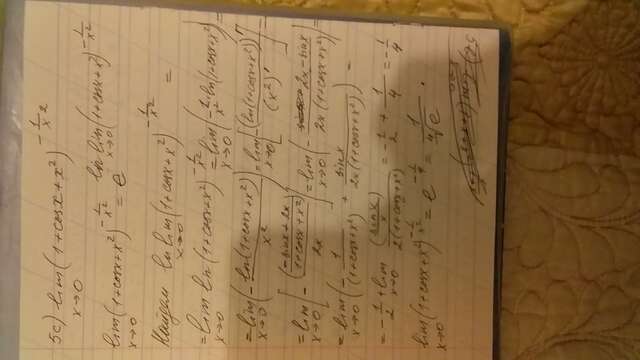 5c) lim x→0 (1+cosx+x²)^(-1/x²)
lim x→0 (1+cosx+x²)^(-1/x²) = e^(ln lim x→0 (1+cosx+x²)^(-1/x²))
Найдем ln lim x→0 (1+cosx+x²)^(-1/x²) =
= lim x→0 ln(1+cosx+x²)^(-1/x²) = lim x→0 (-1/x² · ln(1+cosx+x²)) =
= lim x→0 (- ln(1+cosx+x²) / x²) = lim x→0 [- (ln(1+cosx+x²))' / (x²)'] =
= lim x→0 [- ((-sinx+2x)/(1+cosx+x²)) / 2x] = lim x→0 (- (2x-sinx) / (2x(1+cosx+x²))) =
= lim x→0 (- 1/(1+cosx+x²) + sinx/(2x(1+cosx+x²))) =
= -1/2 + lim x→0 (sinx/x) / (2(1+cosx+x²)) = -1/2 + 1/4 = -1/4
lim x→0 (1+cosx+x²)^(-1/x²) = e^(-1/4) = 1/⁴√e .